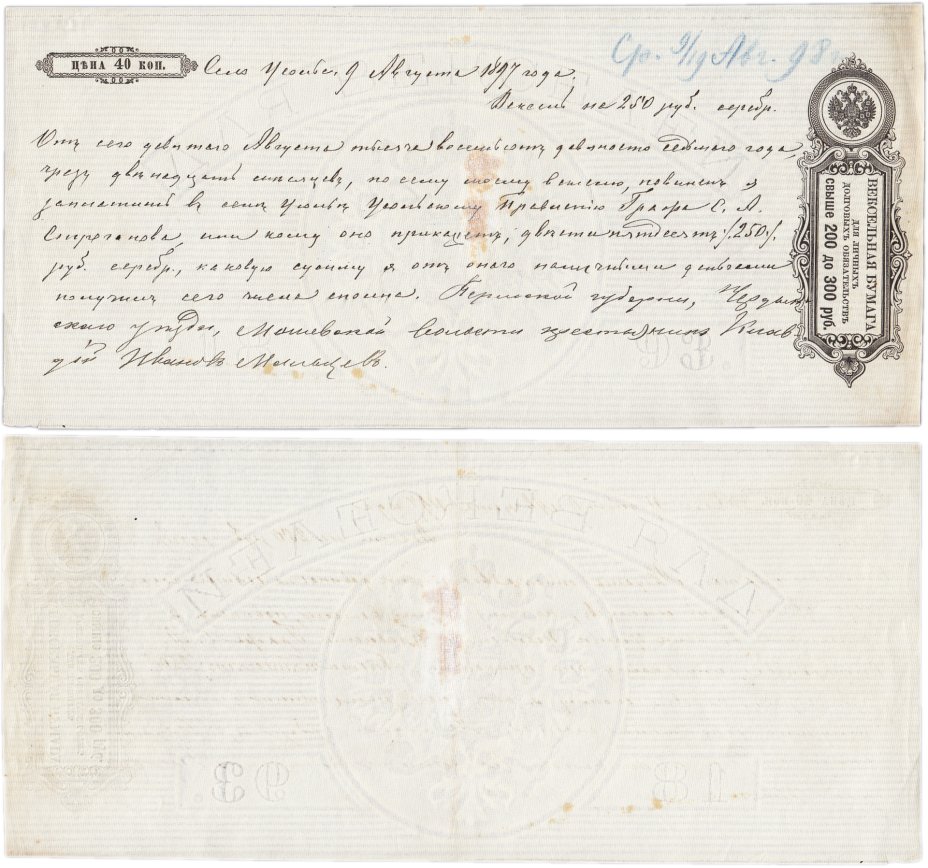 ЦѢНА 40 КОП.
Ср. 9/19 Авг. 98
Село Усолье, 9 Августа 1897 года.
Вексель на 250 руб. серебр.
Отъ сего девятаго Августа тысяча восемьсотъ девяносто седьмого года,
чрезъ двѣнадцать мѣсяцевъ, по сему моему векселю, повиненъ я
заплатить в селѣ Усольѣ Усольскому Правленію Графа С. А.
Строганова, или кому оно прикажетъ, двѣсти пятдесятъ ./.250./.
руб. серебр., каковую сумму я отъ онаго наличными деньгами
получилъ сего числа сполна. Пермской губерніи, Чердын
скаго уѣзда, Мошевской волости крестьянинъ Клав
дій Ивановъ Мальцевъ.
ВЕКСЕЛЬНАЯ БУМАГА
ДЛЯ ЛИЧНЫХЪ
ДОЛГОВЫХЪ ОБЯЗАТЕЛЬСТВЪ
СВЫШЕ 200 ДО 300 РУБ.